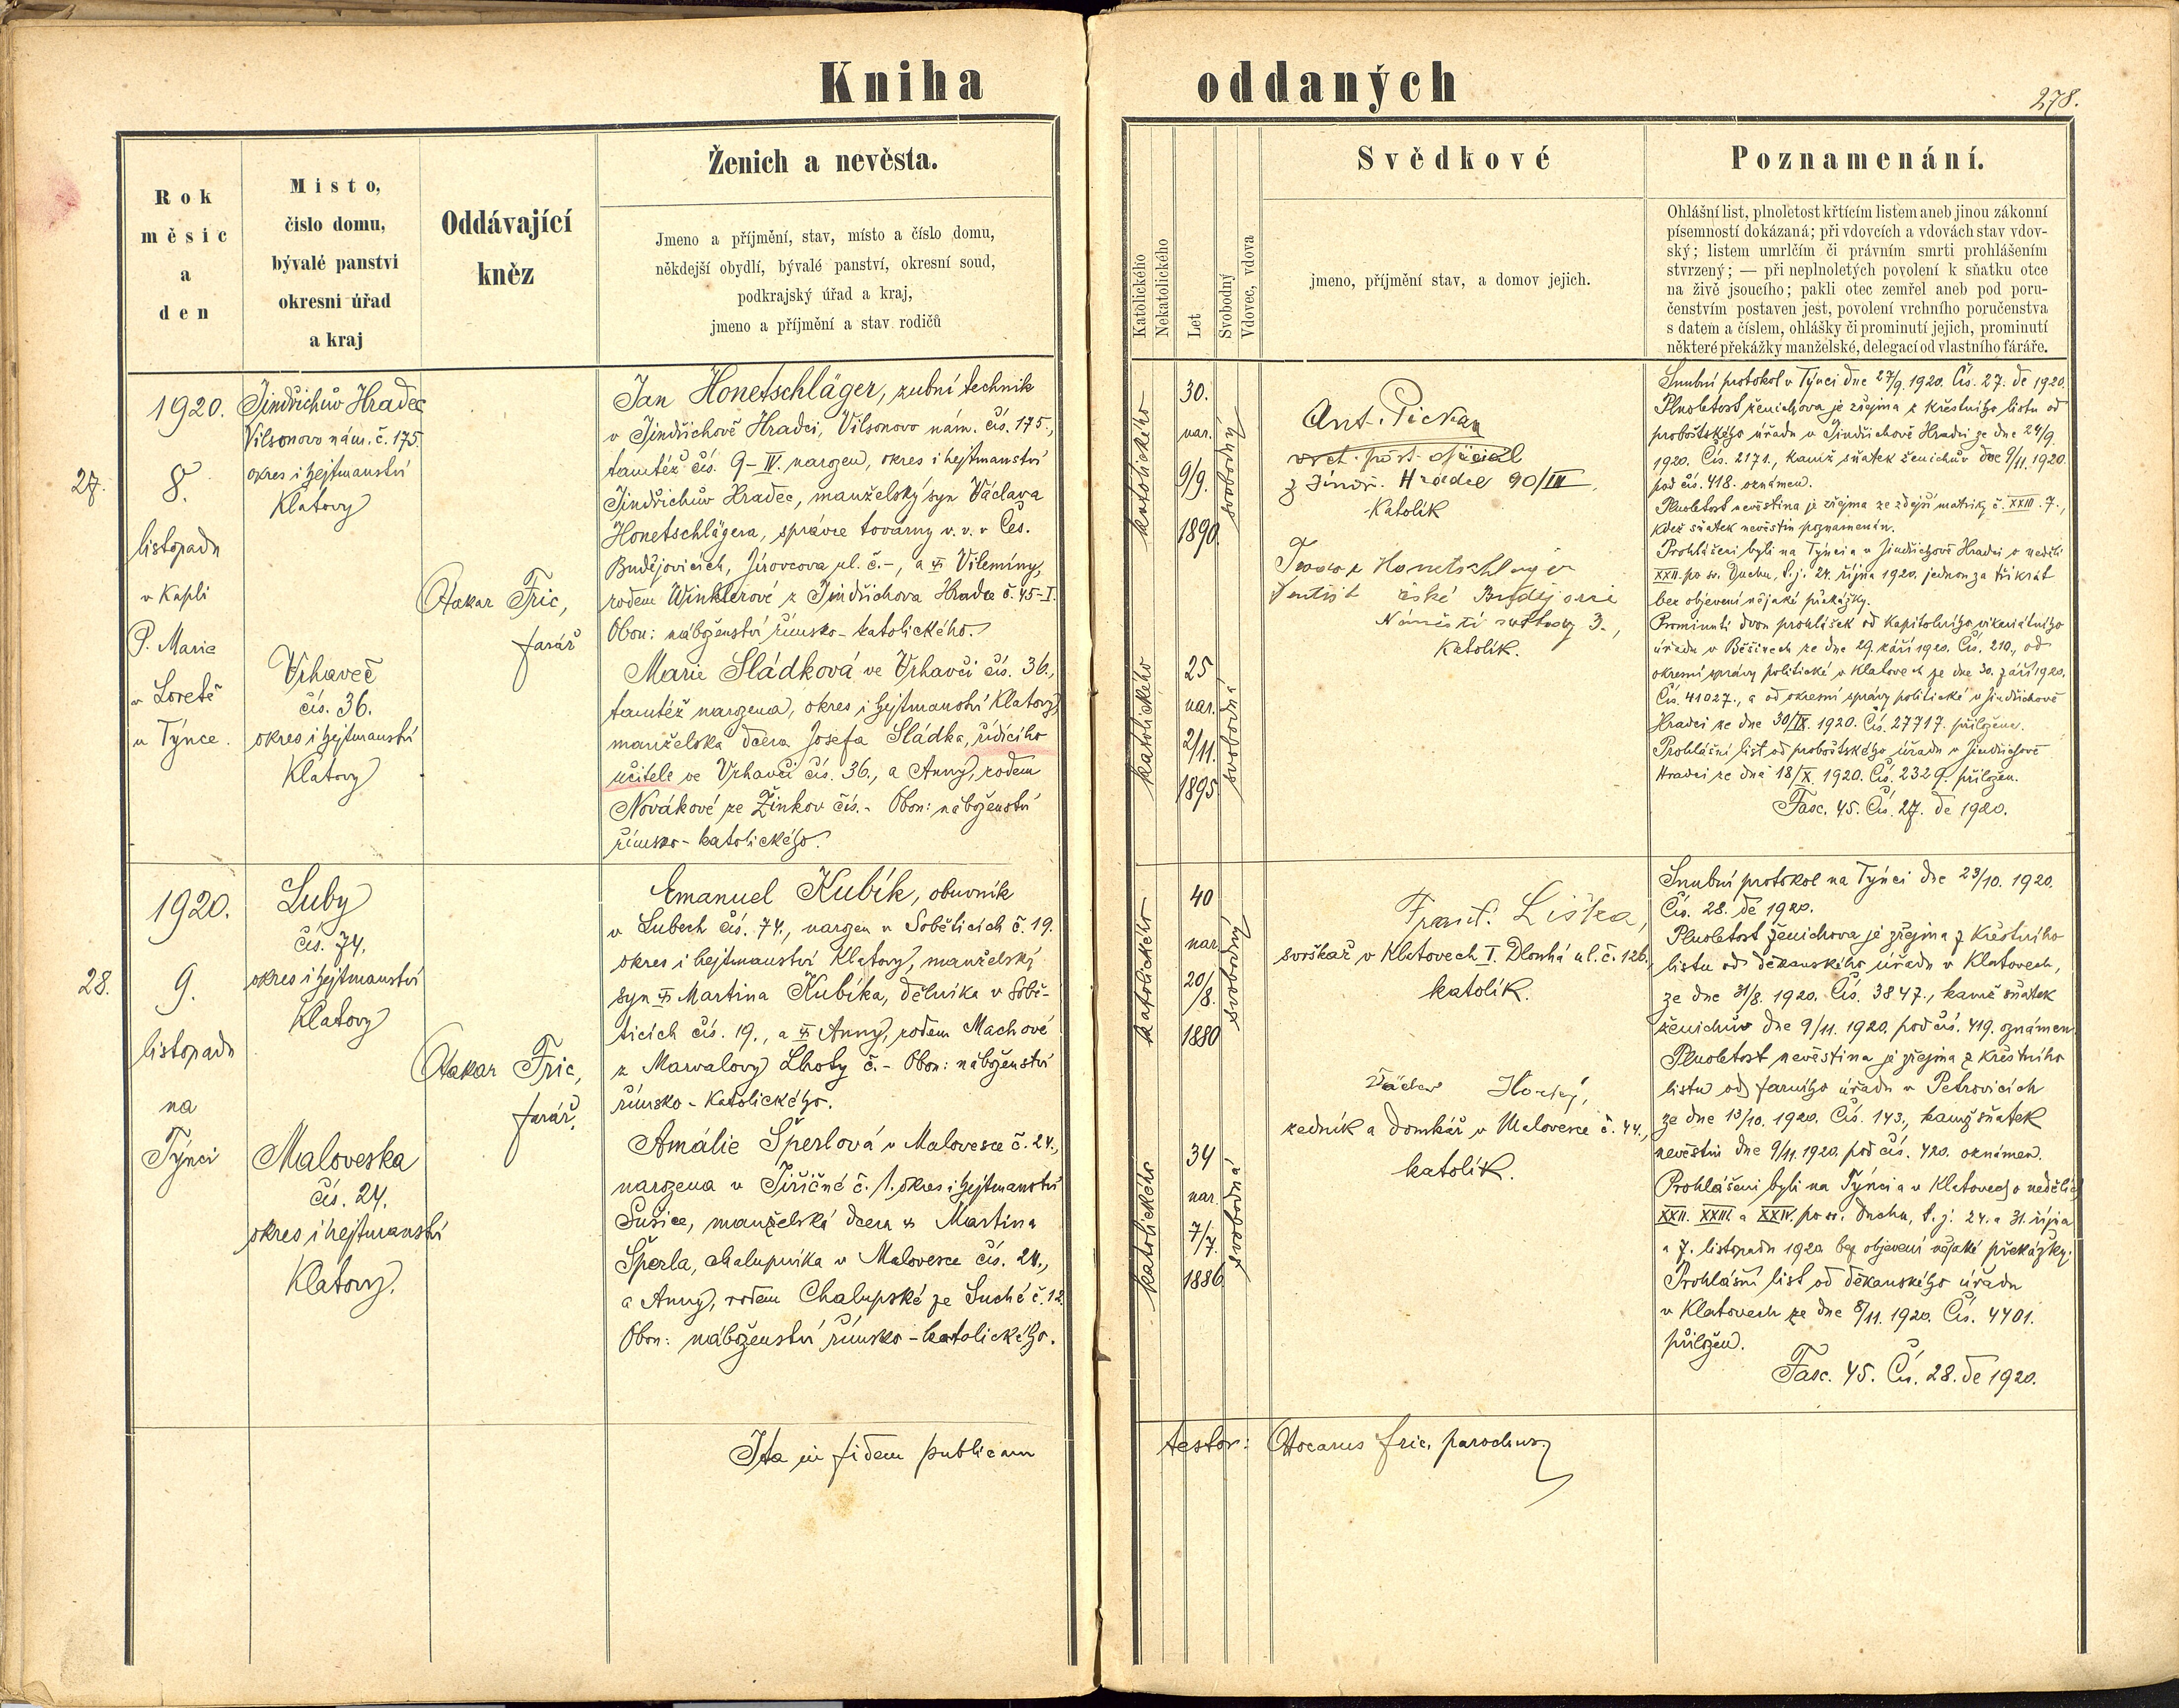 Kniha oddaných
278.
Rok
měsíc
a
den
Místo,
číslo domu,
bývalé panství
okresní úřad
a kraj
Oddávající
kněz
Ženich a nevěsta.
Jmeno a příjmění, stav, místo a číslo domu,
někdejší obydlí, bývalé panství, okresní soud,
podkrajský úřad a kraj,
jmeno a příjmění a stav rodičů
Katolického
Nekatolického
Let
Svobodný
Vdovec, vdova
Svědkové
jmeno, příjmění stav, a domov jejich.
Poznamenání.
Ohlášní list, plnoletost křtícím listem aneb jinou zákonní
písemností dokázaná; při vdovcích a vdovách stav vdov-
ský; listem umrlčím či právním smrti prohlášením
stvrzený; — při neplnoletých povolení k sňatku otce
na živě jsoucího; pakli otec zemřel aneb pod poru-
čenstvím postaven jest, povolení vrchního poručenstva
s datem a číslem, ohlášky či prominutí jejich, prominutí
některé překážky manželské, delegací od vlastního fáráře.
27.
1920.
8.
listopadu
v kapli
P. Marie
v Loretě
u Týnce.
Jindřichův Hradec
Vilsonovo nám. č. 175.
okres i hejtmanství
Klatovy
Vrhaveč
čís. 36.
okres i hejtmanství
Klatovy
Otakar Fric,
farář
Jan Honetschläger, zubní technik
v Jindřichově Hradci, Vilsonovo nám. čís. 175.,
tamtéž čís. 9-IV. narozen, okres i hejtmanství
Jindřichův Hradec, manželský syn Václava
Honetschlägera, správce továrny v. v. v Čes.
Budějovicích, Jirovcova ul. č.-, a Vilemíny,
rodem Winklerové z Jindřichova Hradce č. 45-I.
Obou: náboženství římsko-katolického.
Marie Sládková ve Vrhavči čís. 36.,
tamtéž narozena, okres i hejtmanství Klatovy,
manželská dcera Josefa Sládka, řídícího
učitele ve Vrhavči čís. 36., a Anny, rodem
Novákové ze Žinkov čís.- Obou: náboženství
římsko-katolického.
katolického
30.
nar.
9/9.
1890.
svobodný
katolického
25
nar.
2/11.
1895
svobodná
Ant. Pickan
vrch. pošt. oficiál
z Jindř. Hradce 90/III.
Katolík
Honetschläger
dentist české Budějovice
Náměstí svobody 3.,
Katolík.
Snubní protokol v Týnci dne 27/9. 1920. Čís. 27. de 1920.
Plnoletost ženichova je zřejma z křestního listu od
proboštského úřadu v Jindřichově Hradci ze dne 24/9.
1920. Čís. 2171., kamž sňatek ženichův dne 9/11. 1920
pod čís. 418. oznámen.
Plnoletost nevěstina je zřejma ze zdejší matriky č. XXIII. 7.,
kdež sňatek nevěstin poznamenán.
Prohlášeni byli na Týnci a v Jindřichově Hradci v neděli
XXII. po sv. Duchu, t. j. 24. října 1920. jednou za třikrát
bez objevení nějaké překážky.
Prominutí dvou prohlášek od kapitolního vikariátního
úřadu v Běšinech ze dne 29. září 1920. Čís. 210., od
okresní správy politické v Klatovech ze dne 30. září 1920.
Čís. 41027., a od okresní správy politické v Jindřichově
Hradci ze dne 30/IX. 1920. Čís. 27717. přiložena.
Prohlášní list od proboštského úřadu v Jindřichově
Hradci ze dne 18/X. 1920. Čís. 2329. přiložen.
Fasc. 45. Čís. 27. de 1920.
28.
1920.
9.
listopadu
na
Týnci
Luby
čís. 74.
okres i hejtmanství
Klatovy
Maloveska
čís. 24.
okres i hejtmanství
Klatovy.
Otakar Fric,
farář.
Emanuel Kubík, obuvník
v Lubech čís. 74., narozen v Soběticích č. 19.
okres i hejtmanství Klatovy, manželský
syn Martina Kubíka, dělníka v Sobě-
ticích čís. 19., a Anny, rodem Machové
z Marvalovy Lhoty č.- Obou: náboženství
římsko-katolického.
Amálie Šperlová v Malovesce č. 24.,
narozena v Jiřičné č. 1. okres i hejtmanství
Sušice, manželská dcera Martina
Šperla, chalupníka v Malovesce čís. 24.,
a Anny, rodem Chalupské ze Suché č. 12.
Obou: náboženství římsko-katolického.
katolického
40
nar.
20/8.
1880
svobodný
katolického
34
nar.
7/7.
1886
svobodná
Frant. Liška,
svrškař v Klatovech I. Dlouhá ul. č. 126.
katolík.
Václav Horký,
zedník a domkář v Malovesce č. 44.,
katolík.
Snubní protokol na Týnci dne 23/10. 1920.
Čís. 28. de 1920.
Plnoletost ženichova je zřejma z křestního
listu od děkanského úřadu v Klatovech,
ze dne 31/8. 1920. Čís. 3847., kamž sňatek
ženichův dne 9/11. 1920. pod čís. 419. oznámen.
Plnoletost nevěstina je zřejma z křestního
listu od farního úřadu v Petrovicích
ze dne 13/10. 1920. Čís. 143., kamž sňatek
nevěstin dne 9/11. 1920. pod čís. 420. oznámen.
Prohlášeni byli na Týnci a v Klatovech o nedělích
XXII. XXIII. a XXIV. po sv. Duchu, t. j. 24. a 31. října
a 7. listopadu 1920 bez objevení nějaké překážky.
Prohlášní list od děkanského úřadu
v Klatovech ze dne 8/11. 1920. Čís. 4401.
přiložen.
Fasc. 45. Čís. 28. de 1920.
Ita in fidem publicam testor: Otocarus Fric, parochus.